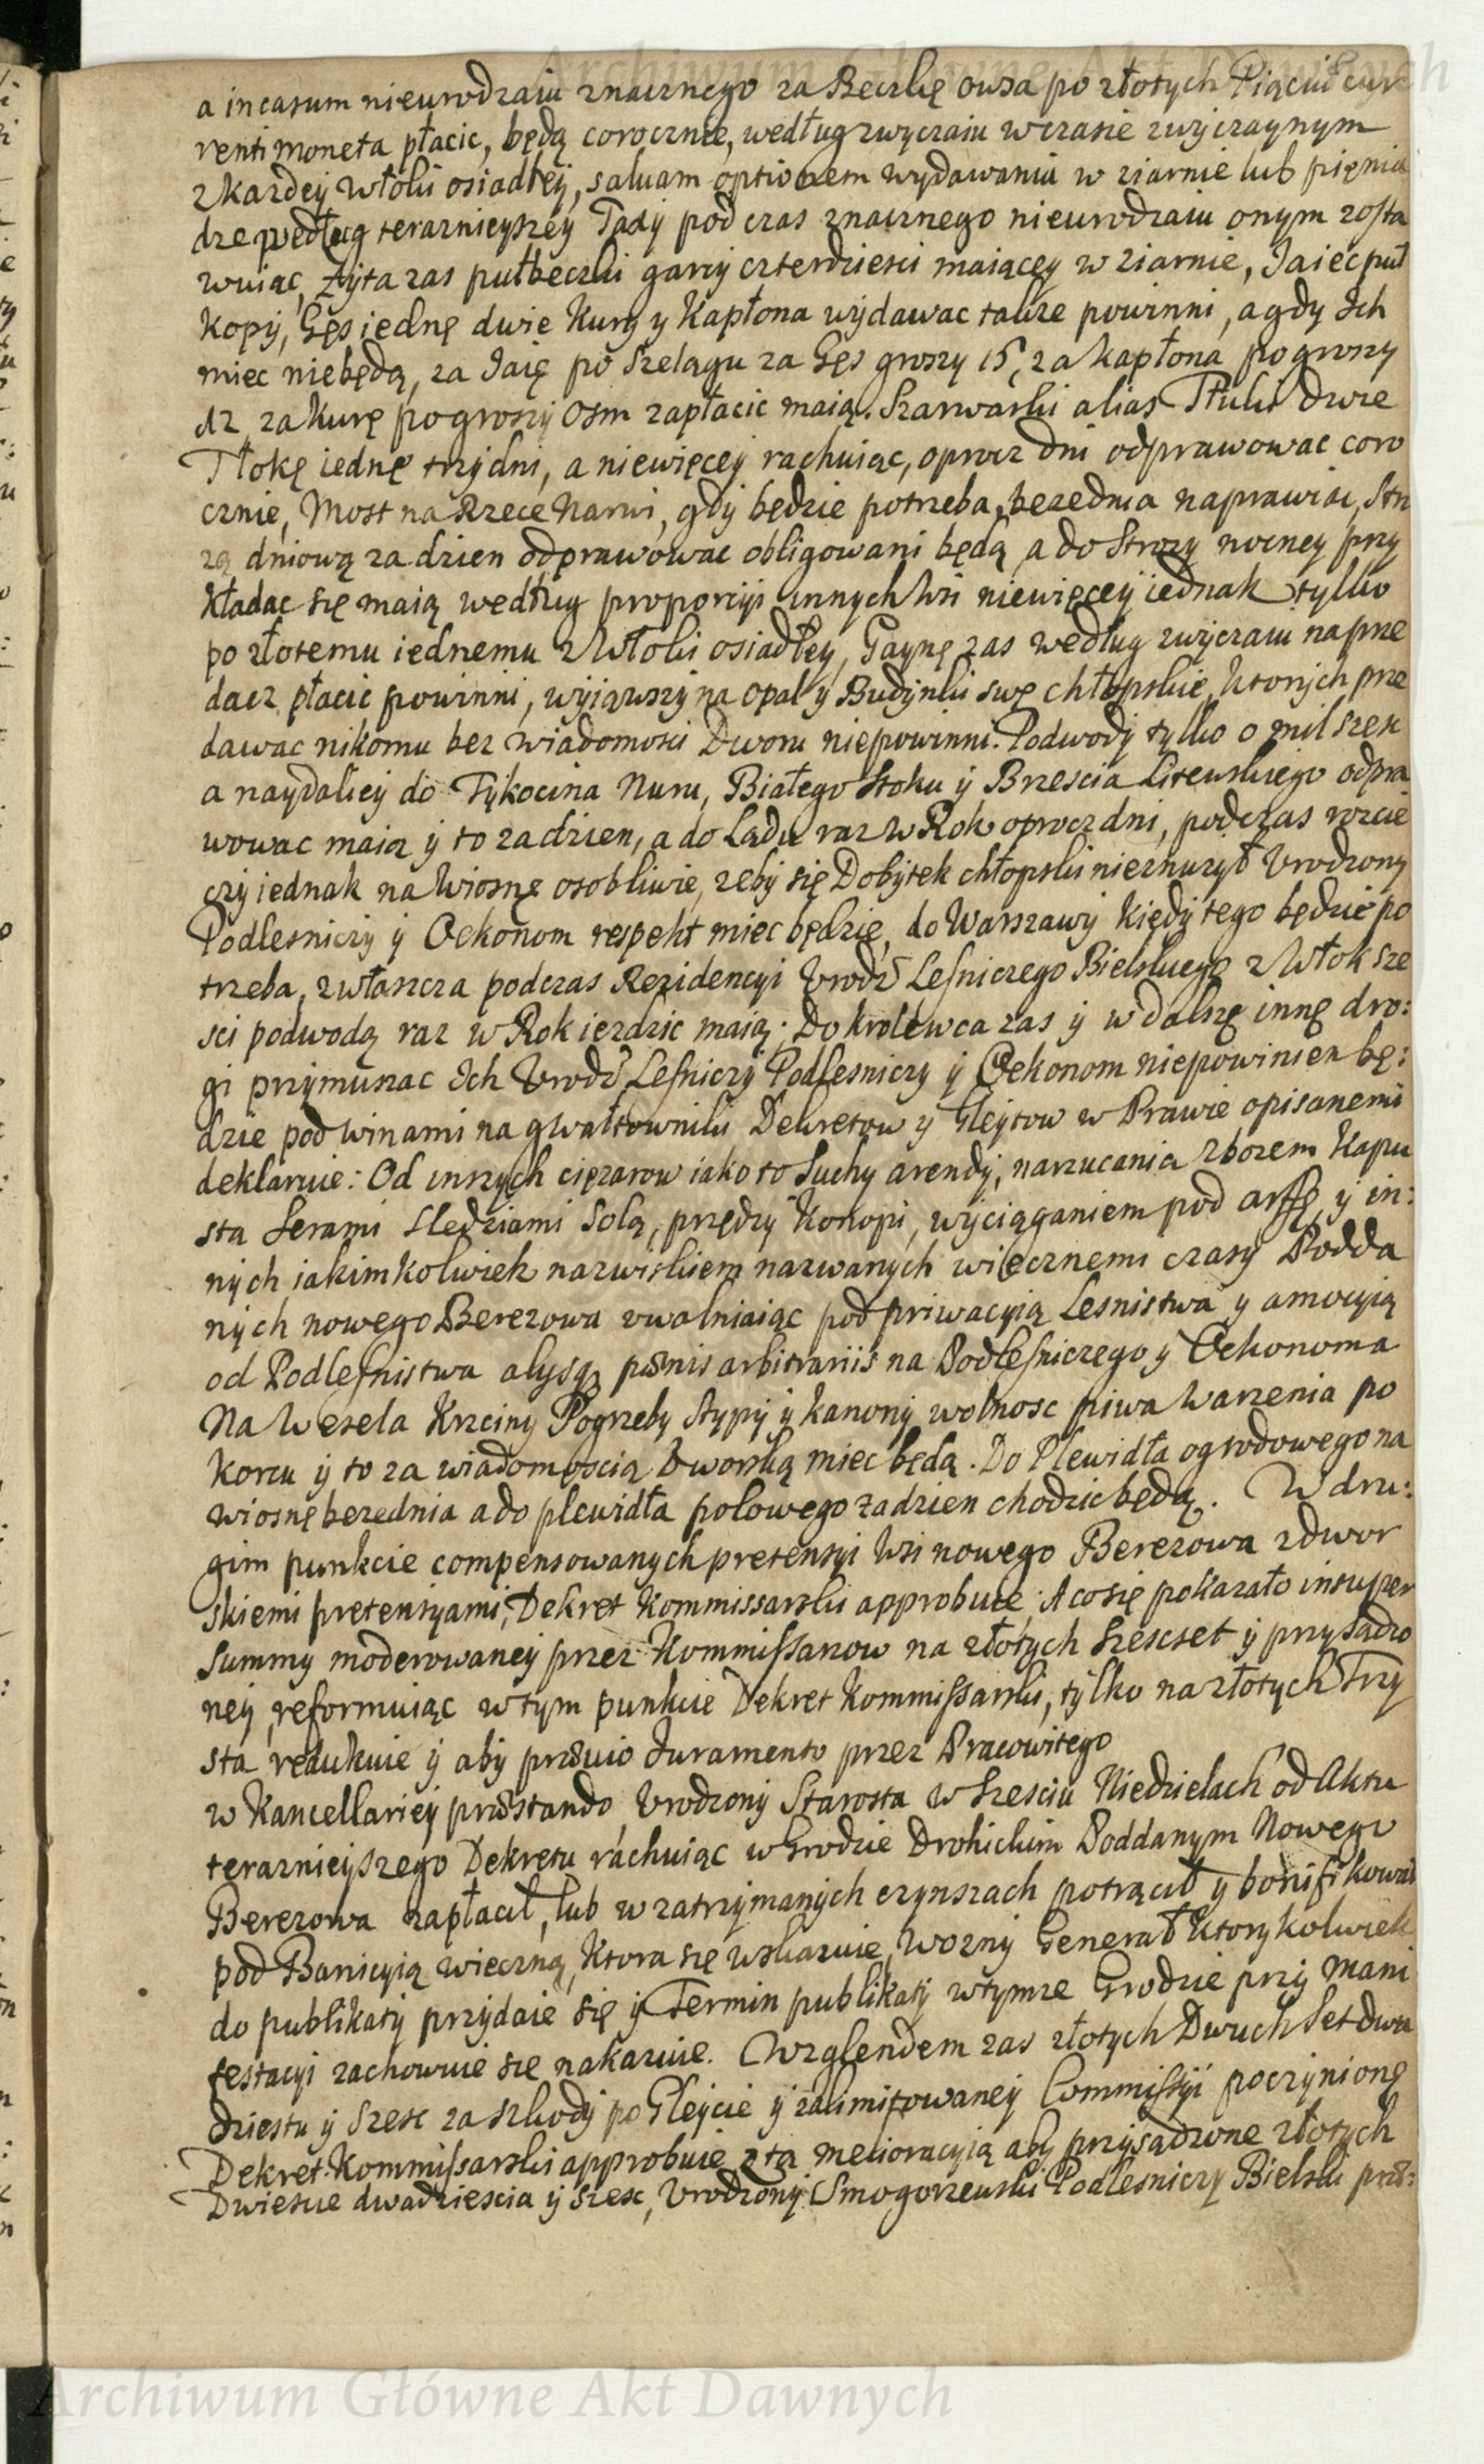 a in casum nieurodzaiu znacznego za Beczkę owsa po złotych Piąciu cur
renti moneta płacic, będą corocznie, według zwyczaiu w czasie zwyczaynym
z kazdey Włoki osiadłey, saluam optionem wydawania w ziarnie lub pięnią
dze według teraznieyszey Taxy pod czas znacznego nieurodzaiu onym zosta
wuiąc, żyta zas puł beczki garcy czterdziesci maiącey w ziarnie, Jaiec puł
Kopy, Gęs iednę dwie Kury y Kapłona wydawac takze powinni, a gdy Ich
miec niebędą, za Jaię po szelągu za Gęs groszy 15, za kapłona po groszy
12 za kurę po groszy osm zapłacic maią. Szarwarki alias Tłuki dwie
Tłokę iednę trzy dni, a niewięcey rachuiąc, oprocz dni odprawowac coro
cznie, Most na Rzece Narwi, gdy będzie potrzeba, bezednia naprawiac, Stro
zą dniową za dzien odprawowac obligowani będą, a do Strozy nocney przy
kładac się maią według proporcyi innych Wsi niewięcey iednak tylko
po złotemu iednemu z Włoki osiadłey, Gaynę zas według zwyczaiu na prze
dacz płacic powinni, wyiąwszy na opał y Budynki swę chłopskie, ktorych prze
dawac nikomu bez wiadomosci Dworu niepowinni. Podwody tylko o mil szesc
a naydaliey do Tykocina Nuru, Białego Stoku y Brzescia Litewskiego odpra
wowac maią y to za dzien, a do Lądu raz w Rok oprocz dni, podczas rozcie
czy iednak na Wiosnę osobliwie, zeby się Dobytek chłopski nieznurzył Vrodzony
Podlesniczy y Oekonom respekt miec będzie, do Warszawy kiedy tego będzie po
trzeba, zwłaszcza podczas Rezidencyi Vrodz Lesniczego Bielskiego z Włok sze
sci podwodą raz w Rok iezdzic maią. Do krolewca zas y w dalszę innę dro:
gi przymuszac Ich Vrodz Lesniczy Podlesniczy y Oekonom niepowinien bę:
dzie pod winami na gwałtowniki Dekretow y Gleytow w Prawie opisanemi
deklaruie: Od inszych cięzarow iako to Suchy arendy, narzucania zbozem Kapu
sta Serami Sledziami Solą, przędzy Konopi, wyciąganiem pod arffę y in:
nych iakimkolwiek nazwiskiem nazwanych wiecznemi czasy Podda
nych nowego Berezowa vwalniaiąc pod priwacyią Lesnistwa y amocyią
od Podlesnistwa alysą pœnis arbitrariis na Podlesniczego y Oekonoma
Na Wesela Krzciny Pogrzeby Stypy y kanony wolnosc piwa Warzenia po
Korcu y to za wiadomoscią Dworską miec będą. Do Plewidła ogrodowego na
wiosnę bezednia a do plewidła polowego za dzien chodzic będą. W dru:
gim punkcie compensowanych pretensyi Wsi nowego Berezowa z dwor
skiemi pretensyami, Dekret Kommissarski approbuie; A co się pokazało insuper
Summy moderowaney przez Kommissarzow na złotych szescset y przysądzo
ney, reformuiąc w tym punkcie Dekret Kommissarski, tylko na złotych Trzy
sta redukuie y aby prævio Juramento przez Pracowitego
w Kancellariey præstando, Vrodzony Starosta w szesciu Niedzielach od Aktu
teraznieyszego Dekretu rachuiąc w Grodzie Drohickim Poddanym Nowego
Berezowa zapłacił, lub w zatrzymanych czynszach potrącił y bonifikował
pod Banicyią wieczną, ktora się wskazuie, Wozny Generał ktorykolwiek
do publikaty przydaie się y Termin publikaty w tymze Grodzie przy mani
festacyi zachowuie się nakazuie. Wzglendem zas złotych Dwuchset dwu
dziestu y szesc za szkody po Gleycie y zalimitowaney Commissyi poczynionę
Dekret Kommissarski approbuie z tą melioracyią aby przysądzone złotych
Dwiescie dwadziescia y szesc, Vrodzony Smogorzewski Podlesniczy Bielski præ:
Archiwum Główne Akt Dawnych